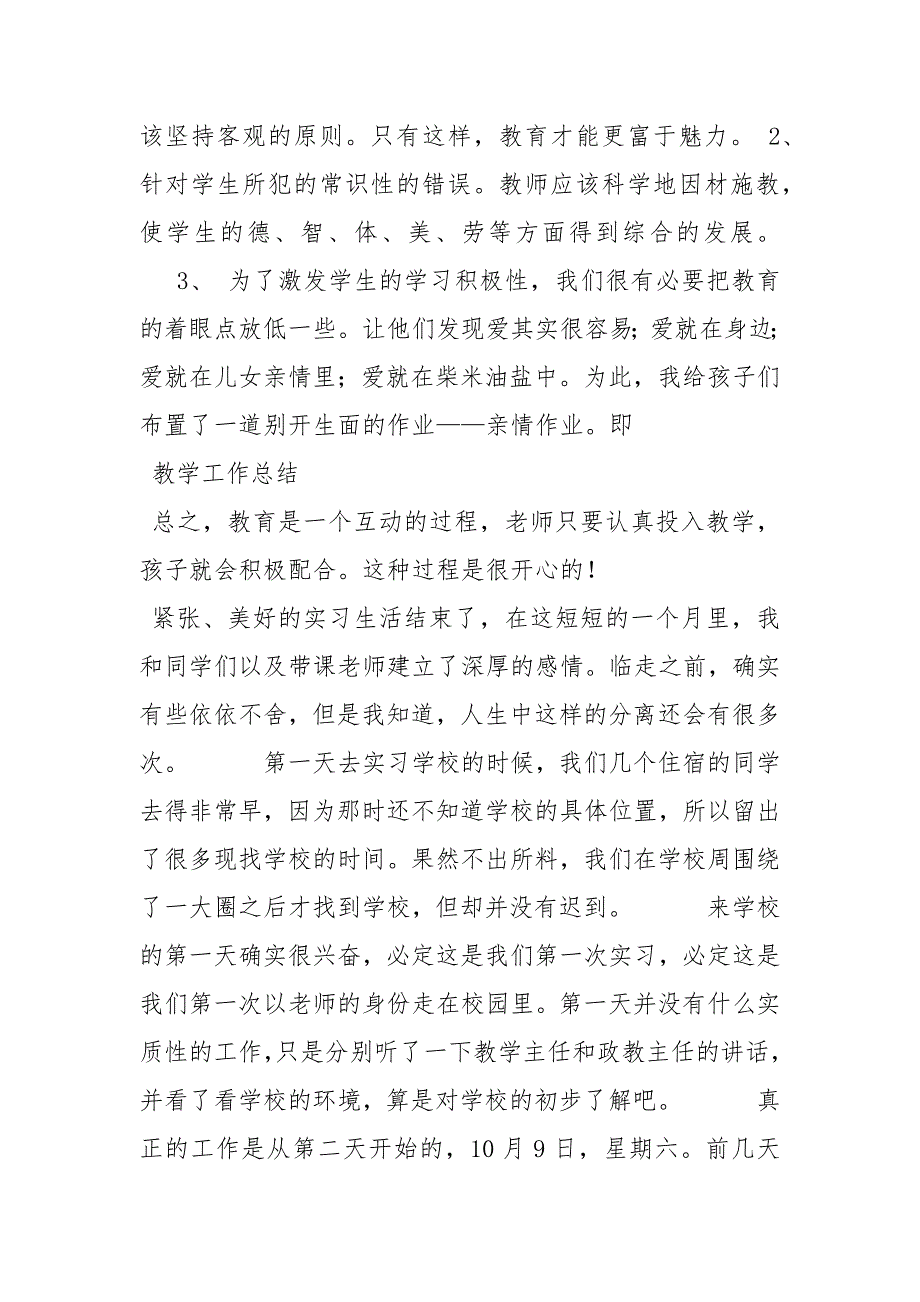 该坚持客观的原则。只有这样，教育才能更富于魅力。 2、
针对学生所犯的常识性的错误。教师应该科学地因材施教，
使学生的德、智、体、美、劳等方面得到综合的发展。
3、 为了激发学生的学习积极性，我们很有必要把教育
的着眼点放低一些。让他们发现爱其实很容易；爱就在身边；
爱就在儿女亲情里；爱就在柴米油盐中。为此，我给孩子们
布置了一道别开生面的作业——亲情作业。即
教学工作总结
总之，教育是一个互动的过程，老师只要认真投入教学，
孩子就会积极配合。这种过程是很开心的！
紧张、美好的实习生活结束了，在这短短的一个月里，我
和同学们以及带课老师建立了深厚的感情。临走之前，确实
有些依依不舍，但是我知道，人生中这样的分离还会有很多
次。 第一天去实习学校的时候，我们几个住宿的同学
去得非常早，因为那时还不知道学校的具体位置，所以留出
了很多现找学校的时间。果然不出所料，我们在学校周围绕
了一大圈之后才找到学校，但却并没有迟到。 来学校
的第一天确实很兴奋，必定这是我们第一次实习，必定这是
我们第一次以老师的身份走在校园里。第一天并没有什么实
质性的工作，只是分别听了一下教学主任和政教主任的讲话，
并看了看学校的环境，算是对学校的初步了解吧。 真
正的工作是从第二天开始的，10 月 9 日，星期六。前几天